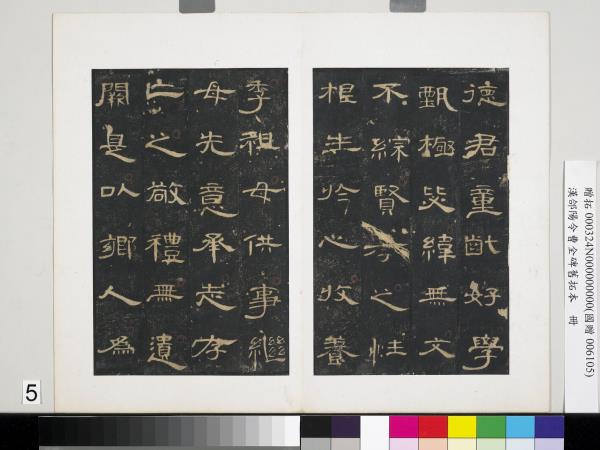 德君童齔好學
甄極毖緯無文
不綜賢孝之性
根生於心收養
季祖母供事繼
母先意承志存
亡之敬禮無遺
闕是以鄉人為
贈拓 000324N000000000(國贈 006105)
漢郃陽令曹全碑舊拓本 冊
5